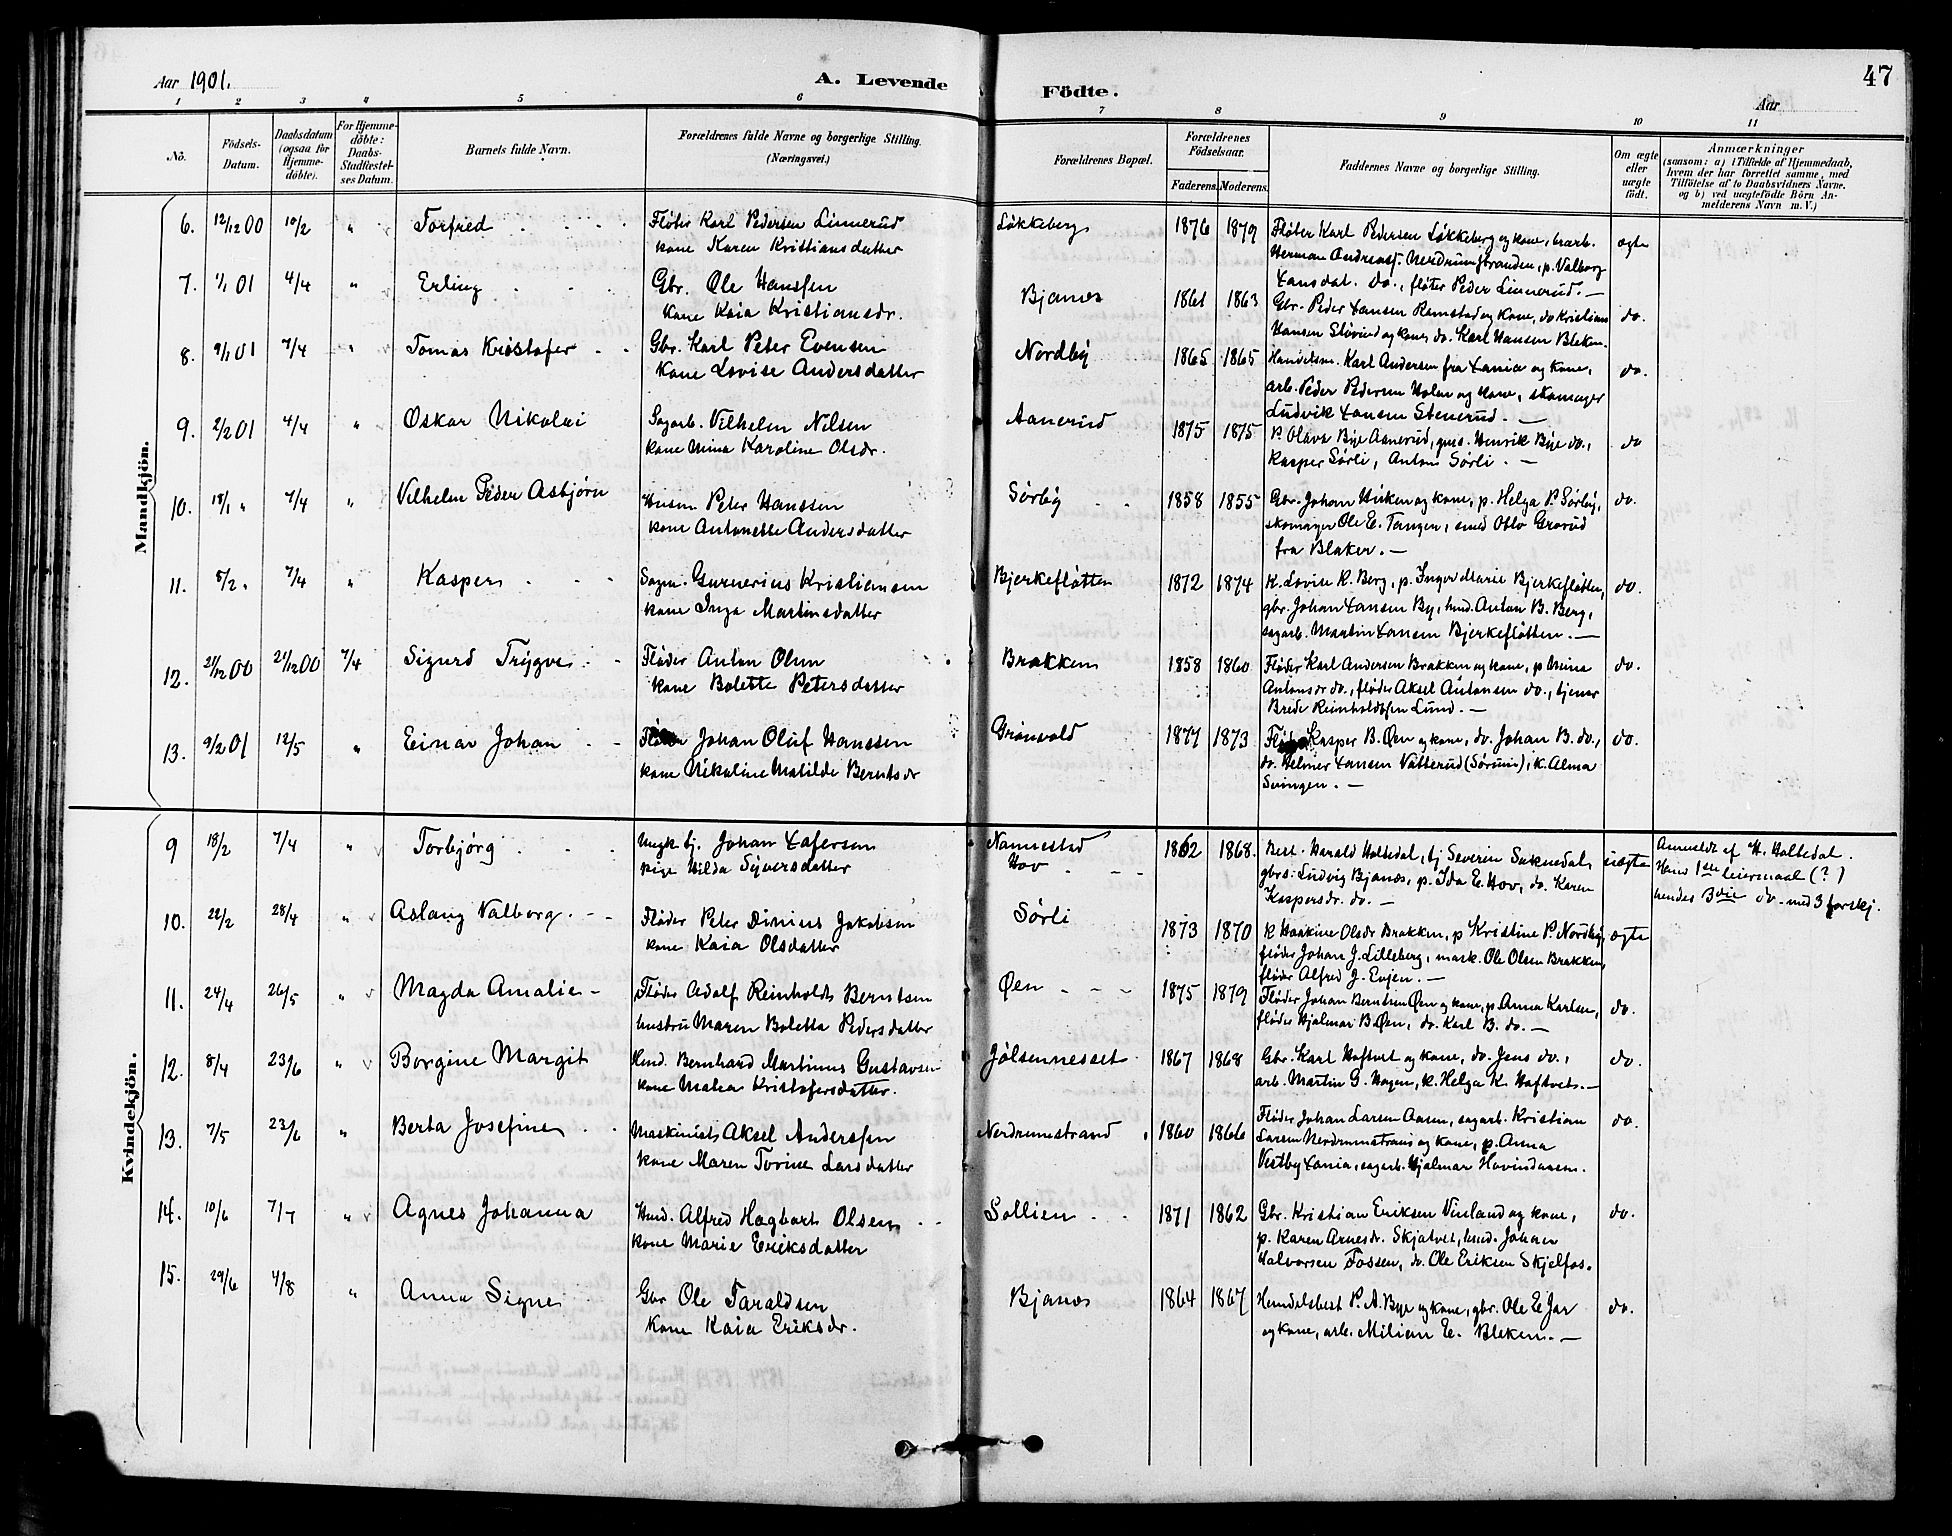 47
Aar 1901.
A. Levende Födte.
Aar
1 2 3 4 5 6 7 8 9 10 11
No.
Födsels-
Datum.
Daabsdatum
(ogsaa for
Hjemme-
döbte).
For Hjemme-
döbte:
Daabs-
Stadfæstel-
ses Datum.
Barnets fulde Navn.
Forældrenes fulde Navne og borgerlige Stilling.
(Næringsvei.)
Forældrenes Bopæl.
Forældrenes
Födselsaar.
Faderens. Moderens.
Faddernes Navne og borgerlige Stilling.
Om ægte
eller
uægte
födt.
Anmærkninger
(saasom: a) i Tilfælde af Hjemmedaab,
hvem der har forrettet samme, med
Tilföielse af to Daabsvidners Navne.
og b) ved uægtefödte Börn An-
melderens Navn m. V.)
Mandkjön.
6. 12/12 00 10/2 " Torfred Fløter Karl Pedersen Linnerud
kone Karen Kristiansdatter
Løkkeberg 1876 1879 Fløter Karl Pedersen Løkkeberg og kone,
Herman Nerdrumstranden, p. Valborg
Larsdat. do., fløter Peder Linnerud. —
ægte
7. 1/1 01 4/4 " Erling Gbr. Ole Hanssen
kone Kaia Kristiansdr.
Bjanes 1861 1863 Gbr. Peder Larsen Remstad og kone, do Kristian
Hansen og kone, do. Karl Hansen Bleken.
do.
8. 9/1 01 7/4 " Tomas Kristofer Gbr. Karl Peter Evensen
Kone Lovise Andersdatter
Nordby 1865 1865 Handelsm. Karl Andersen fra Fania og kone,
arb. Peder Pedersen Holen og kone, skomager
Ludvik Larsen Stenerud. —
do.
9. 2/2 01 4/4 " Oskar Nikolai Sagarb. Vilhelm Nilsen
kone Mina Karoline Olsdr.
Aanerud 1875 1875 P. Olava Bye Aanerud, Henrik Bye do.,
Kasper Sørli, Anton Sørli. —
do
10. 18/1 " 7/4 " Vilhelm Peder Asbjørn Husm Peter Hanssen
kone Antonette Andersdatter
Sørby 1858 1855 Gbr. Johan og kone, p. Helga P. Sørby,
skomager Ole E. Tangen, smed Otto Grorud
fra Blaker. —
do.
11. 8/2 " 7/4 " Kasper Sagm. Gunerius Kristiansen
kone Inga Martinsdatter
Bjerkefløtten 1872 1874 K. Lovise K. Berg, p. Inger Marie Bjerkefløtten,
gbr. Johan Larsen By, hmd. Anton B. Berg,
sagarb. Martin Larsen Bjerkefløtten. —
do.
12. 21/12 00 21/12 00 7/4 Sigurd Trygve Fløder Anton Olsen
kone Bolette Petersdatter
Brakken 1858 1860 Fløder Karl Andersen Brakken og kone, p Mina
Antonsdr do., fløder Aksel Antonsen do., tjener
Brede Reinholdtsen Lund. —
do.
13. 9/2 01 12/5 " Einar Johan Fløder Johan Oluf Hanssen
kone Nikoline Matilde Berntsdr
Grønvold 1877 1873 Fløder Kasper B. Øen og kone, do. Johan B. do.,
do. Helmer Larsen Vatterud (Sørum), k. Alma
Svingen. —
do.
Kvindekjön.
9 18/2 7/4 " Torbjørg Ungk. tj. Johan
pige Hilda Syversdatter
Nannestad
Hov
1862 1868. Best. Harald Holtedal, tj Severin
gbrs. Ludvig Bjanes, p. Ida E. Hov, do. Karen
Kaspersdr. do. —
uægte
Anmeldt af H. Holtedal.
Hans 1ste leiermaal (?)
hendes 3die do. med 3 forskj.
10. 22/2 28/4 " Aslaug Valborg Fløder Peter Dinius Jakobsen
kone Kaia Olsdatter
Sørli 1873 1870 K Haakine Olsdr Brakken, p Kristine P. Nordby,
fløder Johan J. Lilleberg, mask. Ole Olsen Brakken,
fløder Alfred J. Evjen. —
ægte
11. 24/4 26/5 " Magda Amalie Fløder Adolf Reinholdt Berntsen
hustru Maren Boletta Pedersdatter
Øen 1875 1879 Fløder Johan Berntsen Øen og kone, p. Anna Karlsen,
fløder Hjalmar B. Øen, do. Karl B. do. —
do.
12. 8/4 23/6 " Borgine Margit Hmd. Bernhard Martinus Gustavsen
kone Malea Kristofersdatter.
Jølsennesset 1867 1868 Gbr. Karl Haftvet og kone, do. Jens do.,
arb. Martin G. Hagen, k. Helga K. Haftvet. —
do.
13. 7/5 23/6 " Berta Josefine Maskinist Aksel Anderssen
kone Maren Torine Larsdatter
Nerdrumstrand 1860 1866 Fløder Johan Larsen Aasen, sagarb. Kristian
Larsen Nerdrumstrand og kone, p. Anna
Vestby Fania, sagarb. Hjalmar Hovindaasen.
do.
14. 10/6 7/7 " Agnes Johanna Hmd. Alfred Hagbart Olsen
kone Marie Eriksdatter
Sollien 1871 1862 Gbr. Kristian Eriksen Vinland og kone,
p. Karen Arnesdr. Skjatvet, hmd. Johan
Halvorsen Fossen, do. Ole Eriksen Skjelfos.
do.
15. 29/6 4/8 " Anna Signe Gbr Ole Taraldsen
Kone Kaia Eriksdr.
Bjanes 1864 1867 Handelsbest P. A. Bye og kone, gbr. Ole E Jar
og kone, arb. Milian E. Bleken. —
do.